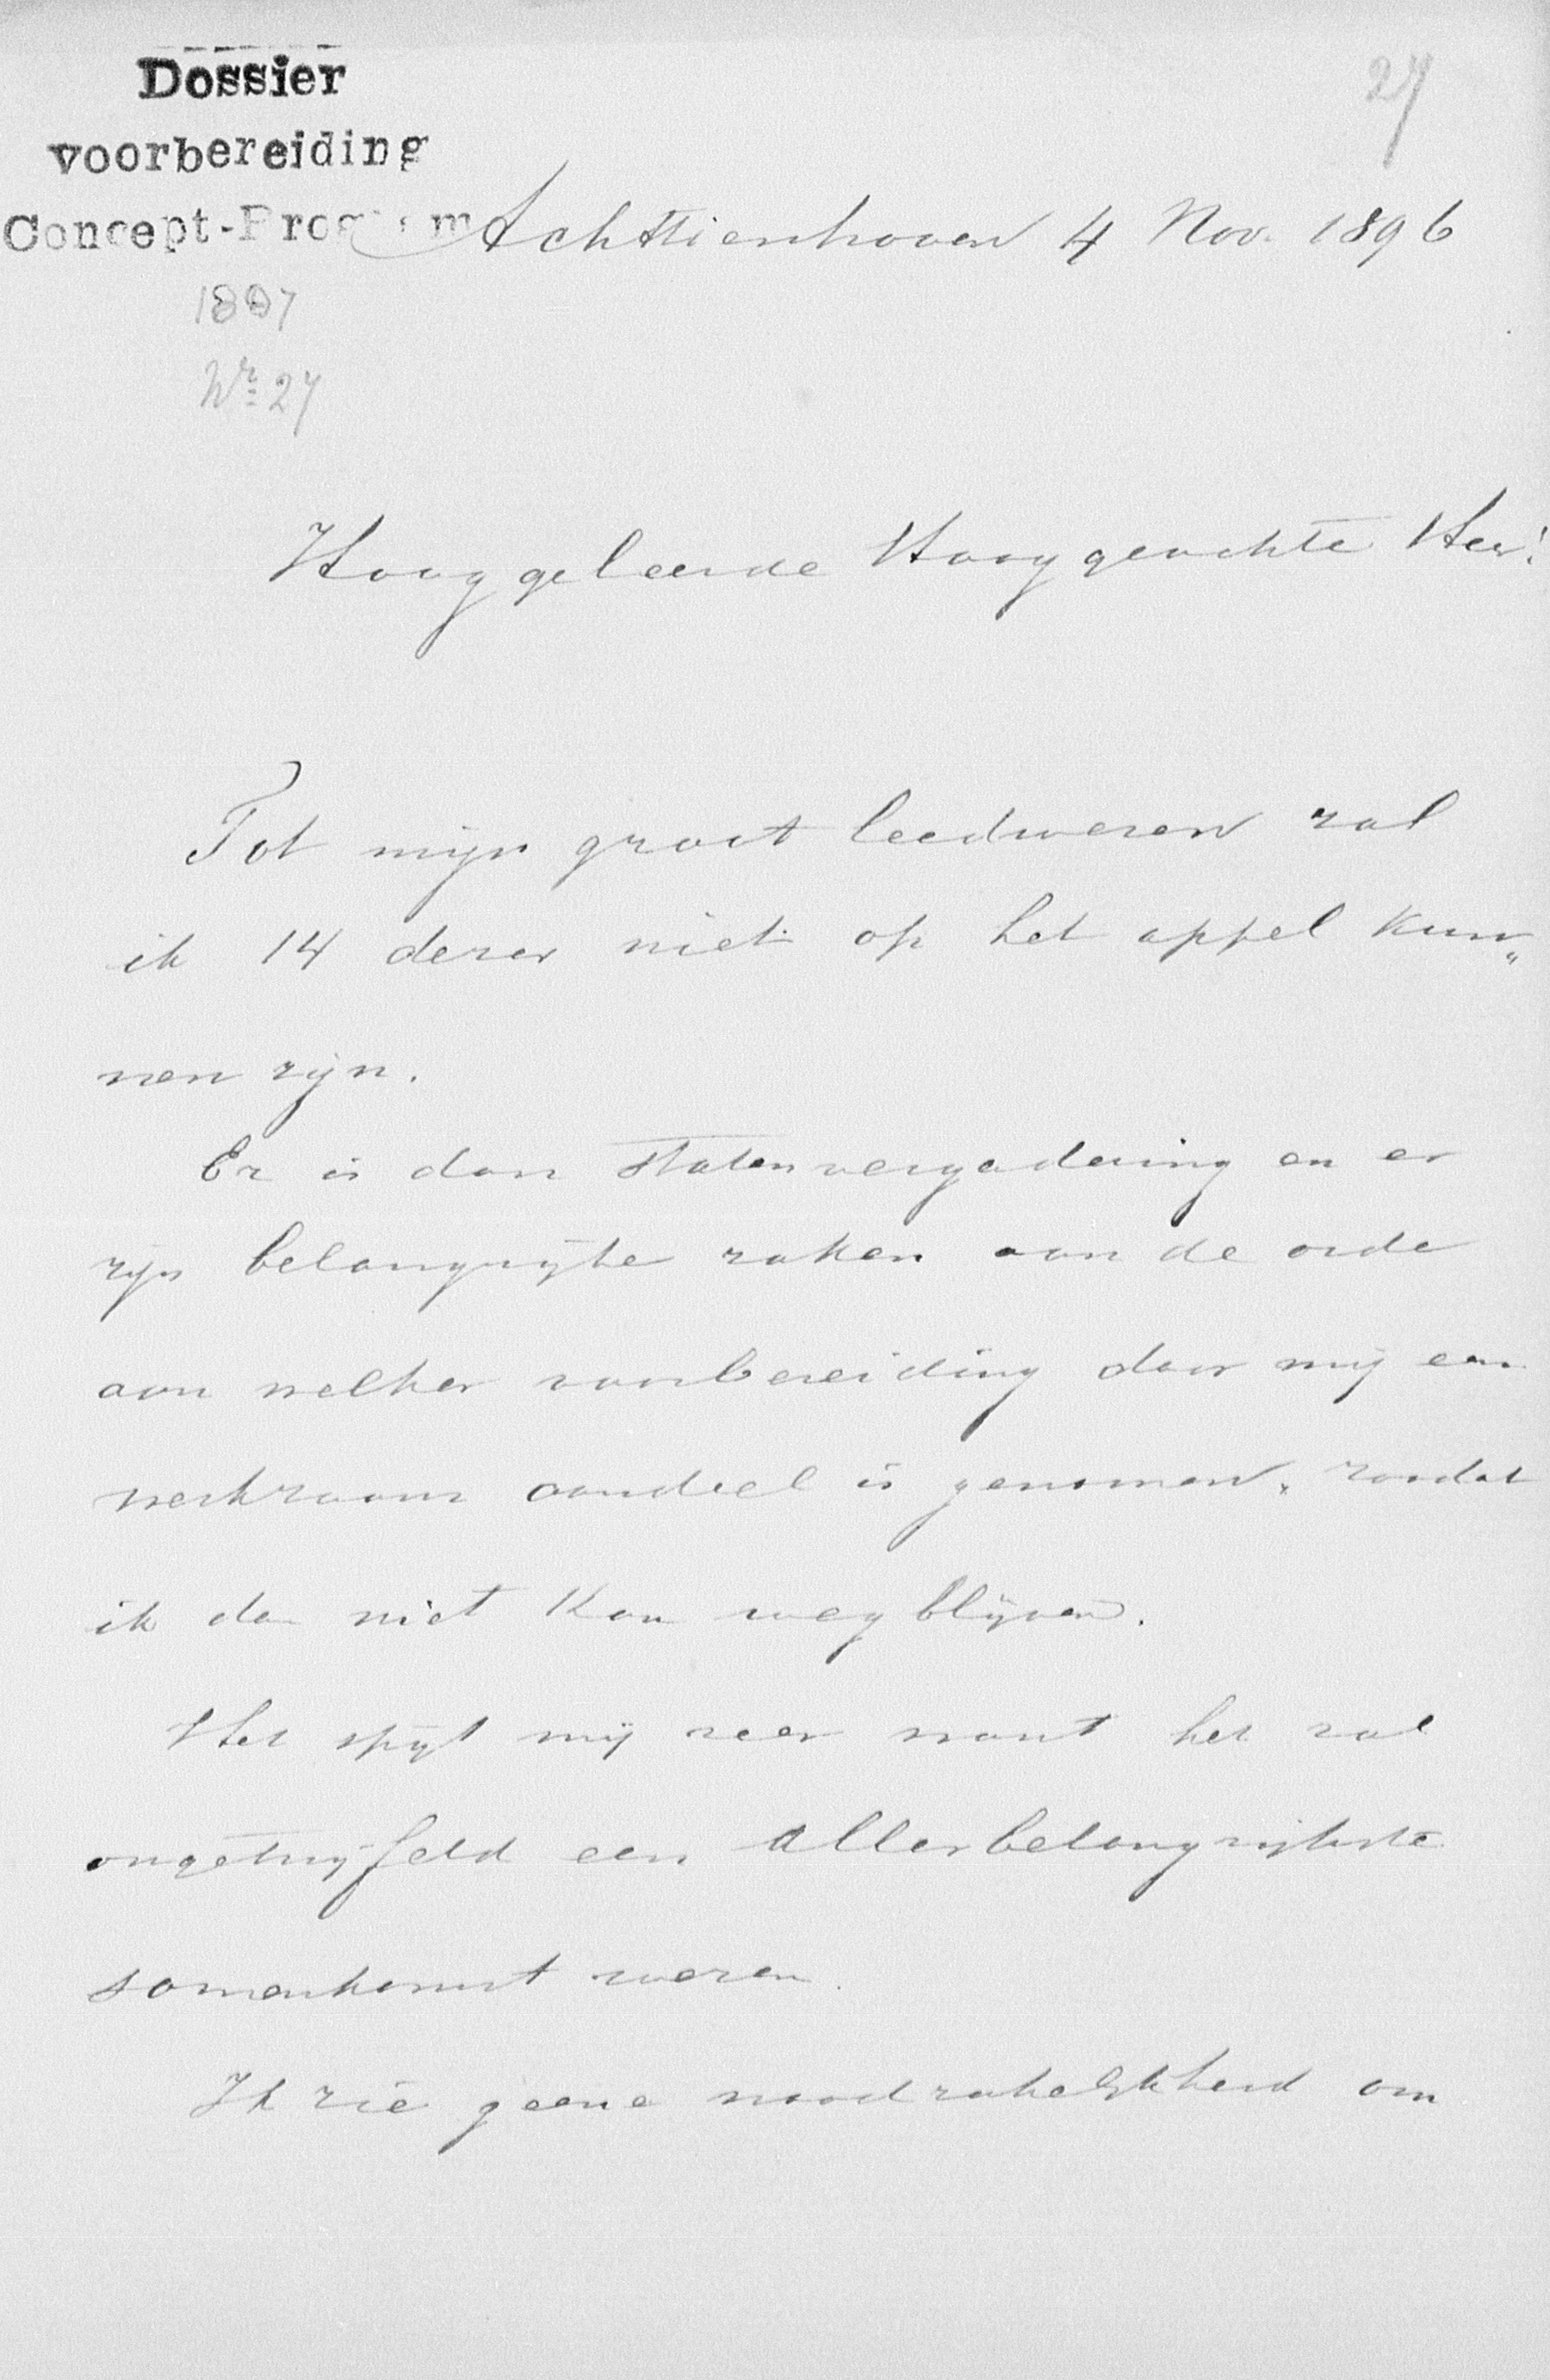 Dossier
27
voorbereiding
Concept-Program Achttienhoven 4 Nov. 1896
1897
Nr 27
Hooggeleerde Hooggeachte Heer!
Tot mijn groot leedwezen zal
ik 14 dezer niet op het appel kun„
nen zijn.
Er is dan Statenvergadering en er
zijn belangrijke zaken aan de orde
aan welker voorbereiding door mij een
werkzaam aandeel is genomen, zoodat
ik dan niet kan wegblijven.
Het spijt mij zeer want het zal
ongetwijfeld een allerbelangrijkste
samenkomst wezen.
Ik zie geene noodzakelijkheid om